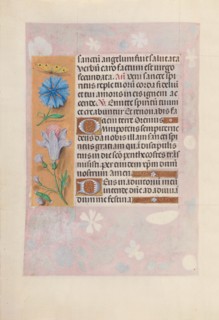 sanctū angelum fuit salutata
verbū caro factum est virgo
fecundata. Añ veni sancte spi
ritus reple tuorū corda fideliū
et tui amoris in eis ignem ac
cende. V̄. Emitte spiritū tuum
et creabuntur Et renovabis fa
ciem terre Oremus
Omnipotens sempiterne
deus da nobis illam sancti spi
ritus gratiam quā discipulis
tuis in die scō penthecostes trās
misisti. per eundem xpm dñm
nostrum Amen
Deus in adiutoriū meū
intende Dñe ad adiuvan
dum me festina